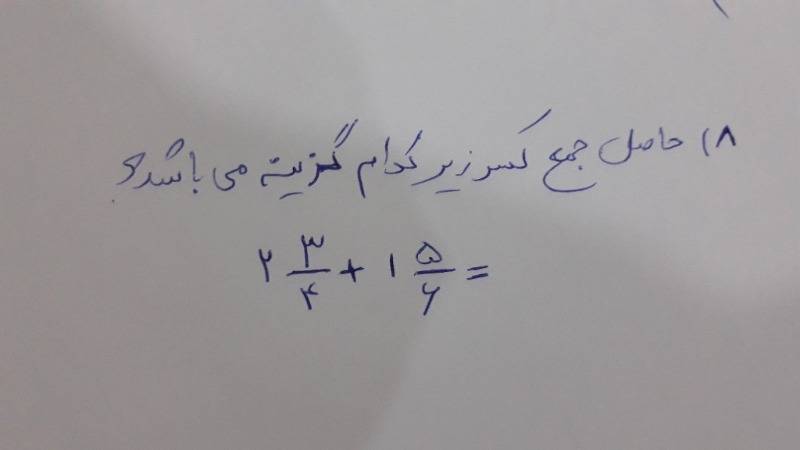 ۸) حاصل جمع کسر زیر کدام گزینه می باشد؟
۲ ۳/۴ + ۱ ۵/۶ =